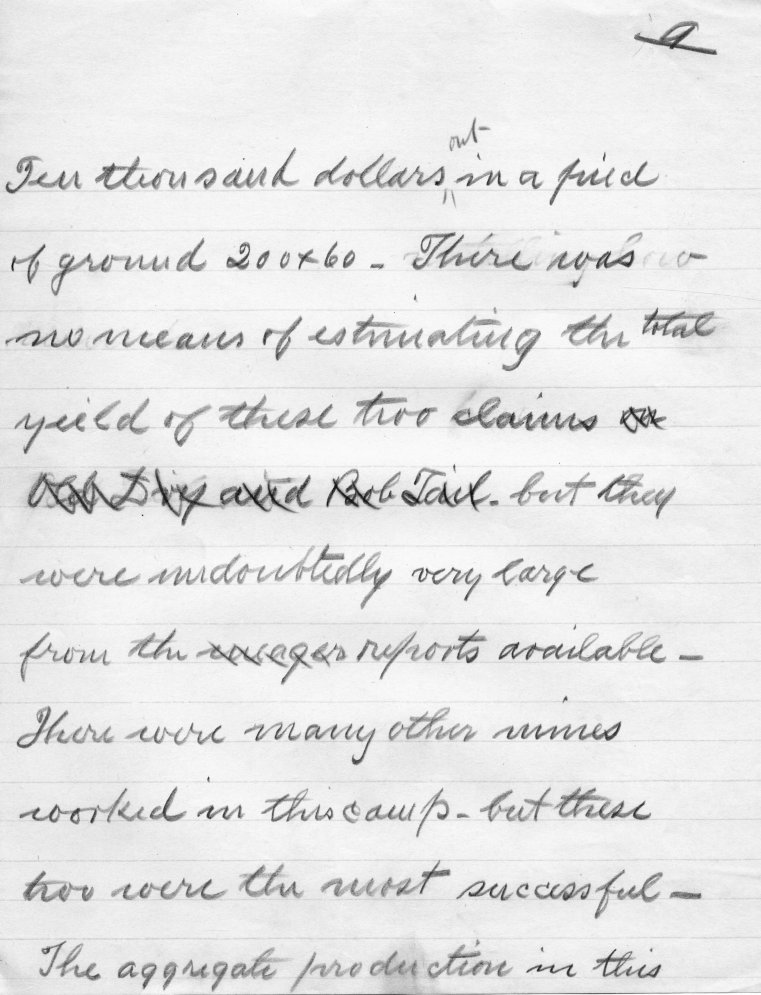 9
Ten thousand dollars out in a piied
of ground 200x60 - There was
no means of estimating the total
yield of these two claims on
Old Dry and Bob Tail. but they
were undoubtedly very large
from the meager reports available -
There were many other mines
worked in this camp - but these
two were the most successful -
The aggregate production in this